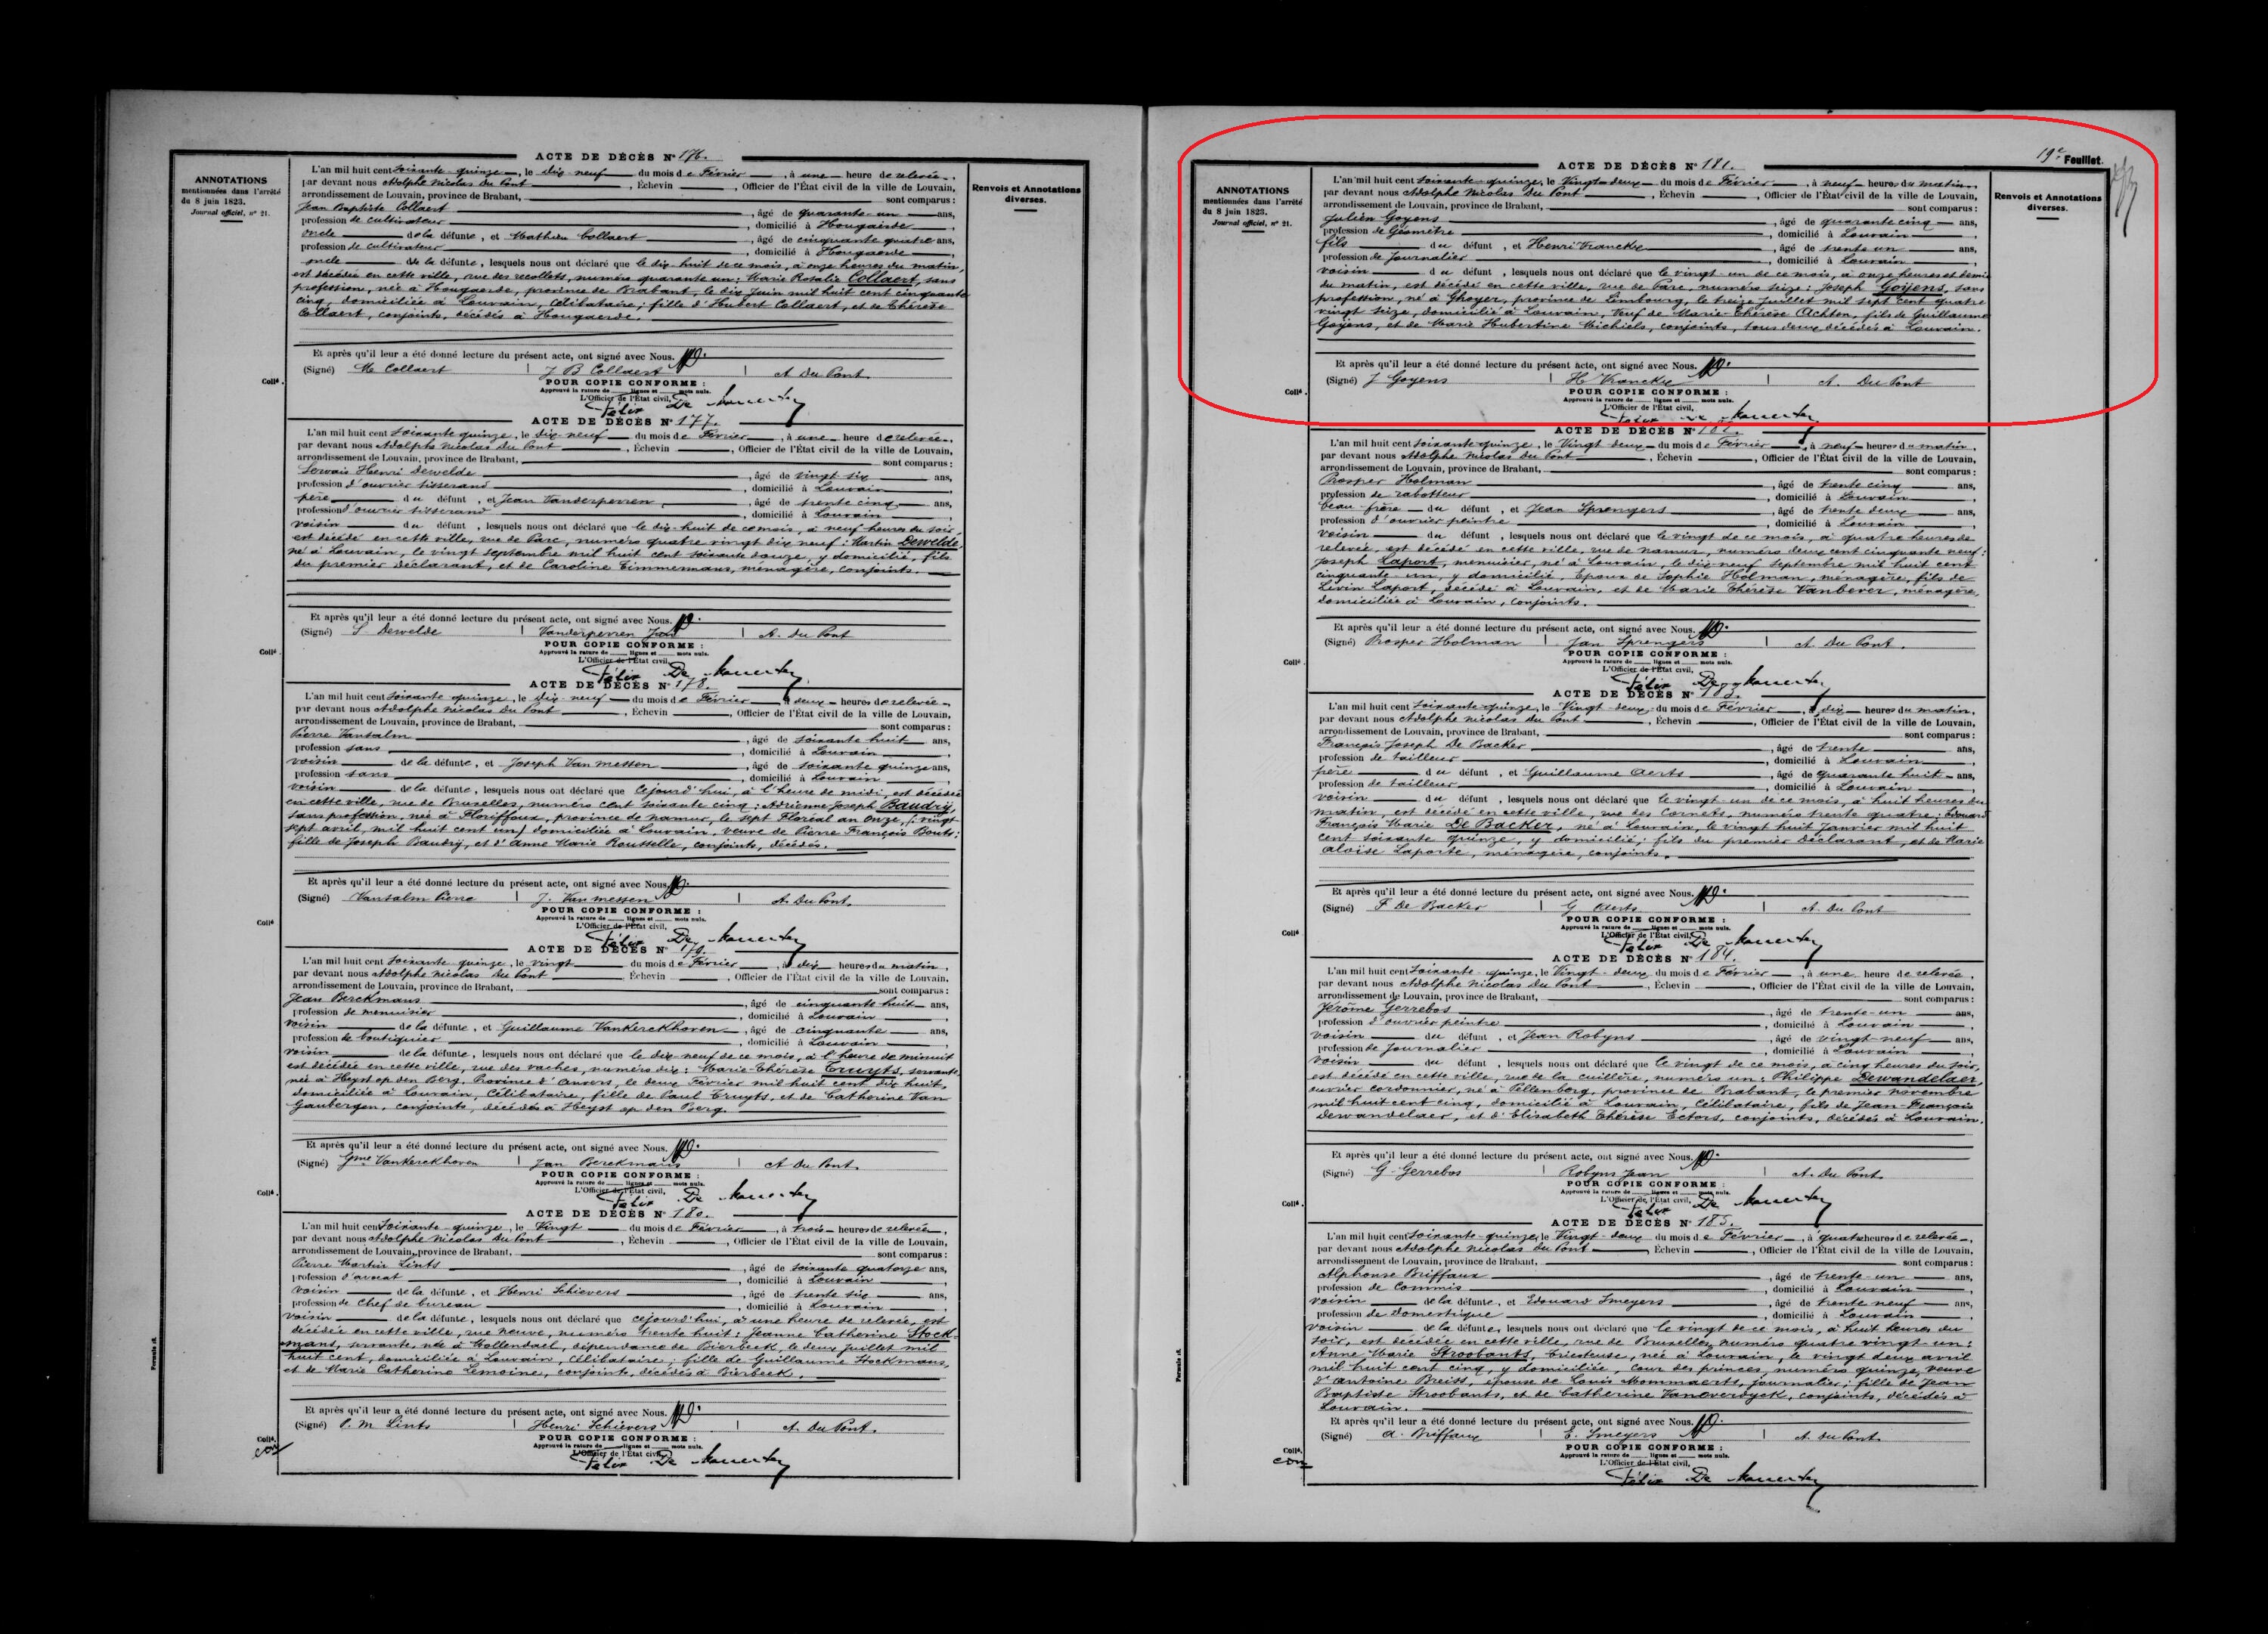 ACTE DE DÉCÈS N° 176.
ANNOTATIONS
mentionnées dans l'arrêté
du 8 juin 1823.
Journal officiel, n° 21.
Renvois et Annotations
diverses.
L'an mil huit cent soixante-quinze, le dix-neuf du mois de Février, à une heure de relevée,
par devant nous Adolphe Nicolas Du Pont, Échevin, Officier de l'État civil de la ville de Louvain,
arrondissement de Louvain, province de Brabant, sont comparus :
Jean Baptiste Collaert, âgé de quarante un ans,
profession de cultivateur, domicilié à Hougaerde,
oncle de la défunte, et Mathieu Collaert, âgé de cinquante quatre ans,
profession de cultivateur, domicilié à Hougaerde,
oncle de la défunte, lesquels nous ont déclaré que le dix-huit de ce mois, à onze heures du matin,
est décédée en cette ville, rue des recollets, numéro quarante un : Marie Rosalie Collaert, sans
profession, née à Hougaerde, province de Brabant, le dix Juin mil huit cent cinquante
cinq, domiciliée à Louvain, Célibataire ; fille d'Hubert Collaert, et de Thérèse
Collaert, conjoints, décédés à Hougaerde.
Et après qu'il leur a été donné lecture du présent acte, ont signé avec Nous.
(Signé) M Collaert | J B Collaert | A. Du Pont.
Coll°.
POUR COPIE CONFORME :
Approuvé la rature de lignes et mots nuls.
L'Officier de l'État civil,
ACTE DE DÉCÈS N° 177.
L'an mil huit cent soixante quinze, le dix-neuf du mois de Février, à une heure de relevée,
par devant nous Adolphe Nicolas Du Pont, Échevin, Officier de l'État civil de la ville de Louvain,
arrondissement de Louvain, province de Brabant, sont comparus :
Servais Henri Dewelde, âgé de vingt six ans,
profession d'ouvrier tisserand, domicilié à Louvain,
père du défunt, et Jean Vanderperren, âgé de trente cinq ans,
profession d'ouvrier tisserand, domicilié à Louvain,
voisin du défunt, lesquels nous ont déclaré que le dix-huit de ce mois, à neuf heures du soir,
est décédé en cette ville, rue de Parc, numéro quatre vingt dix neuf : Martin Dewelde,
né à Louvain, le vingt septembre mil huit cent soixante douze, y domicilié, fils
du premier déclarant, et de Caroline Timmermans, ménagère, conjoints.
Et après qu'il leur a été donné lecture du présent acte, ont signé avec Nous.
(Signé) S Dewelde | Vanderperren Jean | A. Du Pont
Coll°.
POUR COPIE CONFORME :
Approuvé la rature de lignes et mots nuls.
L'Officier de l'État civil,
ACTE DE DÉCÈS N° 178.
L'an mil huit cent soixante-quinze, le dix-neuf du mois de Février, à deux heures de relevée,
par devant nous Adolphe Nicolas Du Pont, Échevin, Officier de l'État civil de la ville de Louvain,
arrondissement de Louvain, province de Brabant, sont comparus :
Pierre Vansalm, âgé de soixante huit ans,
profession sans, domicilié à Louvain,
voisin de la défunte, et Joseph Van messen, âgé de soixante quinze ans,
profession sans, domicilié à Louvain,
voisin de la défunte, lesquels nous ont déclaré que Cejourd'hui, à l'heure de midi, est décédée
en cette ville, rue de Bruxelles, numéro cent soixante cinq : Adrienne Joseph Baudry,
sans profession, née à Floriffoux, province de namur, le sept Floréal an onze, (: vingt
sept avril, mil huit cent un) domiciliée à Louvain, veuve de Pierre François Bouts ;
fille de Joseph Baudry, et d'Anne Marie Rousselle, conjoints, décédés.
Et après qu'il leur a été donné lecture du présent acte, ont signé avec Nous.
(Signé) Vansalm Pierre | J. Van messen | A. Du Pont.
Coll°.
POUR COPIE CONFORME :
Approuvé la rature de lignes et mots nuls.
L'Officier de l'État civil,
ACTE DE DÉCÈS N° 179.
L'an mil huit cent soixante-quinze, le vingt du mois de Février, à dix heures du matin,
par devant nous Adolphe Nicolas Du Pont, Échevin, Officier de l'État civil de la ville de Louvain,
arrondissement de Louvain, province de Brabant, sont comparus :
Jean Berckmans, âgé de cinquante huit ans,
profession de menuisier, domicilié à Louvain,
voisin de la défunte, et Guillaume VanKerckhoven, âgé de cinquante ans,
profession de boutiquier, domicilié à Louvain,
voisin de la défunte, lesquels nous ont déclaré que le dix-neuf de ce mois, à l'heure de minuit
est décédée en cette ville, rue des vaches, numéro dix : Marie-Thérèse Truyts, servante,
née à Heyst op den Berg, Province d'Anvers, le deux Février mil huit cent dix huit,
domiciliée à Louvain, Célibataire, fille de Paul Truyts, et de Catherine Van
Gaubergen, conjoints, décédés à Heyst op den Berg.
Et après qu'il leur a été donné lecture du présent acte, ont signé avec Nous.
(Signé) Gme VanKerckhoven | Jan Berckmans | A Du Pont.
Coll°.
POUR COPIE CONFORME :
Approuvé la rature de lignes et mots nuls.
L'Officier de l'État civil,
ACTE DE DÉCÈS N° 180.
L'an mil huit cent Soixante-quinze, le Vingt du mois de Février, à trois heures de relevée,
par devant nous Adolphe Nicolas Du Pont, Échevin, Officier de l'État civil de la ville de Louvain,
arrondissement de Louvain, province de Brabant, sont comparus :
Pierre Martin Lints, âgé de soixante quatorze ans,
profession d'avocat, domicilié à Louvain,
voisin de la défunte, et Henri Schievers, âgé de trente six ans,
profession de Chef de bureau, domicilié à Louvain,
voisin de la défunte, lesquels nous ont déclaré que cejourd'hui, à une heure de relevée, est
décédée en cette ville, rue neuve, numéro trente huit : Jeanne Catherine Stock-
mans, servante, née à Mollendael, dépendance de Bierbeek, le deux juillet mil
huit cent, domiciliée à Louvain, Célibataire ; fille de Guillaume Stockmans,
et de Marie Catherine Lemoine, conjoints, décédés à Bierbeek.
Et après qu'il leur a été donné lecture du présent acte, ont signé avec Nous.
(Signé) P. M. Lints | Henri Schievers | A. Du Pont.
Coll°.
POUR COPIE CONFORME :
Approuvé la rature de lignes et mots nuls.
L'Officier de l'État civil,
Formule 18.
19e Feuillet.
ACTE DE DÉCÈS N° 181.
ANNOTATIONS
mentionnées dans l'arrêté
du 8 juin 1823.
Journal officiel, n° 21.
Renvois et Annotations
diverses.
L'an mil huit cent Soixante-quinze, le Vingt-deux du mois de Février, à neuf heures du matin,
par devant nous Adolphe Nicolas Du Pont, Échevin, Officier de l'État civil de la ville de Louvain,
arrondissement de Louvain, province de Brabant, sont comparus :
Julien Goyens, âgé de quarante cinq ans,
profession de Géomètre, domicilié à Louvain,
fils du défunt, et Henri Vranckx, âgé de trente un ans,
profession de Journalier, domicilié à Louvain,
voisin du défunt, lesquels nous ont déclaré que le vingt-un de ce mois, à onze heures et demie
du matin, est décédé en cette ville, rue de Parc, numéro seize : Joseph Goyens, sans
profession, né à Ghoyer, province de Limbourg, le treize Juillet mil sept cent quatre
vingt seize, domicilié à Louvain, Veuf de Marie-Thérèse Achten, fils de Guillaume
Goyens, et de Marie Hubertine Michiels, conjoints, tous deux décédés à Louvain.
Et après qu'il leur a été donné lecture du présent acte, ont signé avec Nous.
(Signé) J Goyens | H Vranckx | A. Du Pont
Coll°.
POUR COPIE CONFORME :
Approuvé la rature de lignes et mots nuls.
L'Officier de l'État civil,
ACTE DE DÉCÈS N° 182.
L'an mil huit cent Soixante-quinze, le Vingt deux du mois de Février, à neuf heures du matin,
par devant nous Adolphe Nicolas Du Pont, Échevin, Officier de l'État civil de la ville de Louvain,
arrondissement de Louvain, province de Brabant, sont comparus :
Prosper Holman, âgé de trente cinq ans,
profession de rabotteur, domicilié à Louvain,
beau-frère du défunt, et Jean Sprengers, âgé de trente deux ans,
profession d'ouvrier peintre, domicilié à Louvain,
voisin du défunt, lesquels nous ont déclaré que le vingt de ce mois, à quatre heures de
relevée, est décédé en cette ville, rue de namur, numéro deux cent cinquante neuf :
Joseph Laport, menuisier, né à Louvain, le dix neuf Septembre mil huit cent
cinquante-un, y domicilié, Époux de Sophie Holman, ménagère, fils de
Livin Laport, décédé à Louvain, et de Marie Thérèse Vanbever, ménagère,
domiciliée à Louvain, conjoints.
Et après qu'il leur a été donné lecture du présent acte, ont signé avec Nous.
(Signé) Prosper Holman | Jan Sprengers | A. Du Pont.
Coll°.
POUR COPIE CONFORME :
Approuvé la rature de lignes et mots nuls.
L'Officier de l'État civil,
ACTE DE DÉCÈS N° 183.
L'an mil huit cent Soixante quinze, le Vingt-deux du mois de Février, à dix heures du matin,
par devant nous Adolphe Nicolas Du Pont, Échevin, Officier de l'État civil de la ville de Louvain,
arrondissement de Louvain, province de Brabant, sont comparus :
François Joseph De Backer, âgé de trente ans,
profession de tailleur, domicilié à Louvain,
père du défunt, et Guillaume Aerts, âgé de quarante huit ans,
profession de tailleur, domicilié à Louvain,
voisin du défunt, lesquels nous ont déclaré que le vingt-un de ce mois, à huit heures du
matin, est décédé en cette ville, rue des Cornets, numéro trente quatre : Edouard
François Marie De Backer, né à Louvain, le vingt huit Janvier mil huit
cent soixante quinze, y domicilié ; fils du premier déclarant, et de Marie
Aloïse Laporte, ménagère, conjoints.
Et après qu'il leur a été donné lecture du présent acte, ont signé avec Nous.
(Signé) F De Backer | G Aerts | A. Du Pont
Coll°.
POUR COPIE CONFORME :
Approuvé la rature de lignes et mots nuls.
L'Officier de l'État civil,
ACTE DE DÉCÈS N° 184.
L'an mil huit cent Soixante-quinze, le Vingt-deux du mois de Février, à une heure de relevée,
par devant nous Adolphe Nicolas Du Pont, Échevin, Officier de l'État civil de la ville de Louvain,
arrondissement de Louvain, province de Brabant, sont comparus :
Jérôme Gerrebos, âgé de trente-un ans,
profession d'ouvrier peintre, domicilié à Louvain,
voisin du défunt, et Jean Robyns, âgé de vingt-neuf ans,
profession de Journalier, domicilié à Louvain,
voisin du défunt, lesquels nous ont déclaré que le vingt de ce mois, à cinq heures du soir,
est décédé en cette ville, rue de la cuillère, numéro un : Philippe Dewandelaer,
ouvrier cordonnier, né à Pellenberg, province de Brabant, le premier novembre
mil huit cent cinq, domicilié à Louvain, Célibataire, fils de Jean-François
Dewandelaer, et d'Elisabeth Thérèse Ectors, conjoints, décédés à Louvain.
Et après qu'il leur a été donné lecture du présent acte, ont signé avec Nous.
(Signé) G. Gerrebos | Robyns Jean | A. Du Pont.
Coll°.
POUR COPIE CONFORME :
Approuvé la rature de lignes et mots nuls.
L'Officier de l'État civil,
ACTE DE DÉCÈS N° 185.
L'an mil huit cent Soixante-quinze, le Vingt-deux du mois de Février, à quatre heures de relevée,
par devant nous Adolphe Nicolas Du Pont, Échevin, Officier de l'État civil de la ville de Louvain,
arrondissement de Louvain, province de Brabant, sont comparus :
Alphonse Briffaux, âgé de trente-un ans,
profession de Commis, domicilié à Louvain,
voisin de la défunte, et Edouard Smeyers, âgé de trente neuf ans,
profession de domestique, domicilié à Louvain,
voisin de la défunte, lesquels nous ont déclaré que le vingt de ce mois, à huit heures du
soir, est décédée en cette ville, rue de Bruxelles, numéro quatre vingt un :
Anne Marie Stroobants, tricoteuse, née à Louvain, le vingt deux avril
mil huit cent cinq, y domiciliée, cour des princes, numéro quinze, veuve
d'Antoine Breiss, épouse de Louis Mommaerts, journalier ; fille de Jean
Baptiste Stroobants, et de Catherine Vanoverdyck, conjoints, décédés à
Louvain.
Et après qu'il leur a été donné lecture du présent acte, ont signé avec Nous.
(Signé) A. Briffaux | E. Smeyers | A. Du Pont.
Coll°.
POUR COPIE CONFORME :
Approuvé la rature de lignes et mots nuls.
L'Officier de l'État civil,
Formule 18.